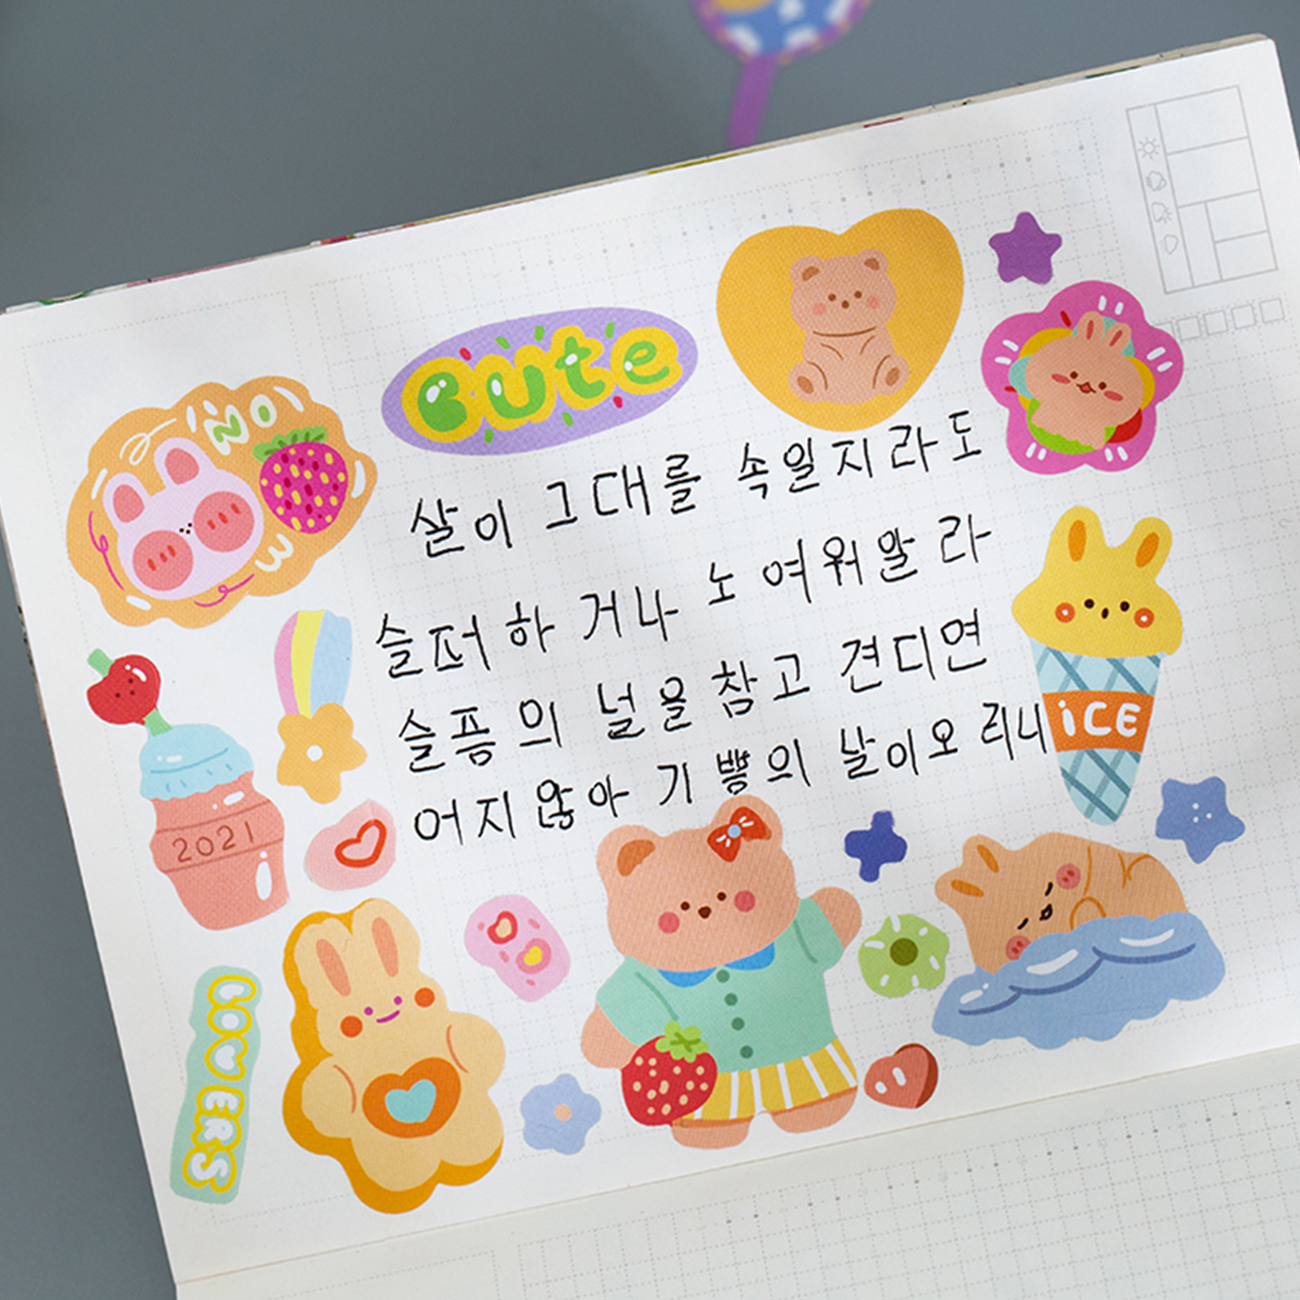 Cute
NO
살이 그대를 속일지라도
슬퍼하거나 노여워말라
슬픔의 널을 참고 견디면
어지않아 기쁭의 날이오리니
ICE
2021
LOVERS